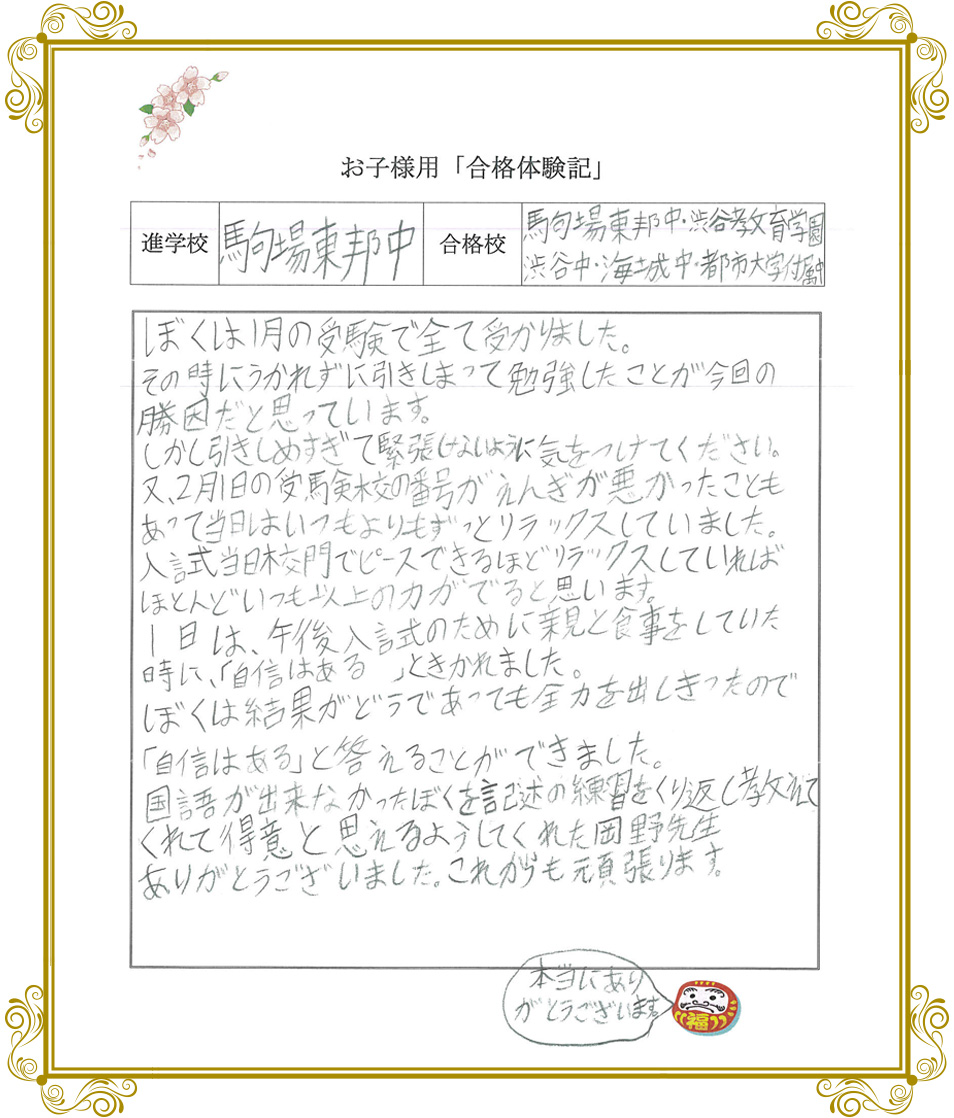 お子様用「合格体験記」
進学校
駒場東邦中
合格校
駒場東邦中・渋谷教育学園
渋谷中・海城中・都市大学付属中
ぼくは1月の受験で全て受かりました。
その時にうかれずに引きしまって勉強したことが今回の
勝因だと思っています。
しかし引きしめすぎて緊張しないように気をつけてください。
又、2月1日の受験校の番号がえんぎが悪かったことも
あって当日はいつもよりもずっとリラックスしていました。
入試式当日校門でピースできるほどリラックスしていれば
ほとんどいつも以上の力がでると思います。
1日は、午後入試式のために親と食事をしていた
時に、「自信はある 」ときかれました。
ぼくは結果がどうであっても全力を出しきったので
「自信はある」と答えることができました。
国語が出来なかったぼくを記述の練習をくり返し教えて
くれて得意と思えるようしてくれた岡野先生
ありがとうございました。これからも頑張ります。
本当にあり
がとうございます。
福